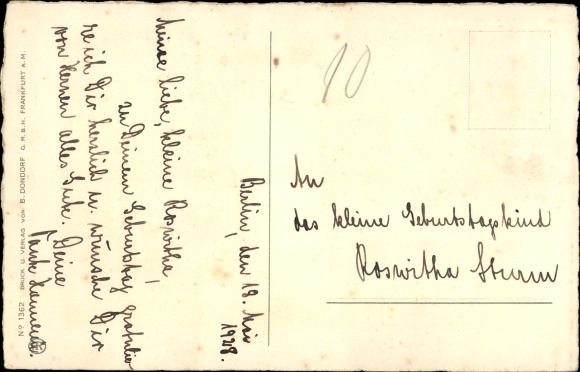 Meine liebe, kleine Roswitha,
zu Deinem Geburtstag gratulie
re ich Dir herzlich u. wünsche Dir
von Herzen alles Gute. Deine
Tante
Berlin, den 18. Mai
1928.
10
An
das kleine Geburtstagskind
Roswitha Sturm
No 1362 DRUCK U. VERLAG VON B. DONDORF G.M.B.H. FRANKFURT A.M.